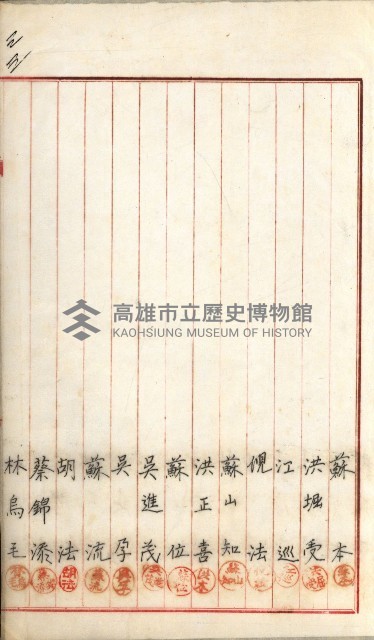 蘇本
洪堀受
江巡
倪法
蘇山知
洪正喜
蘇位
吳進茂
吳孕
蘇流
胡法
蔡錦添
林烏毛
高雄市立歷史博物館
KAOHSIUNG MUSEUM OF HISTORY